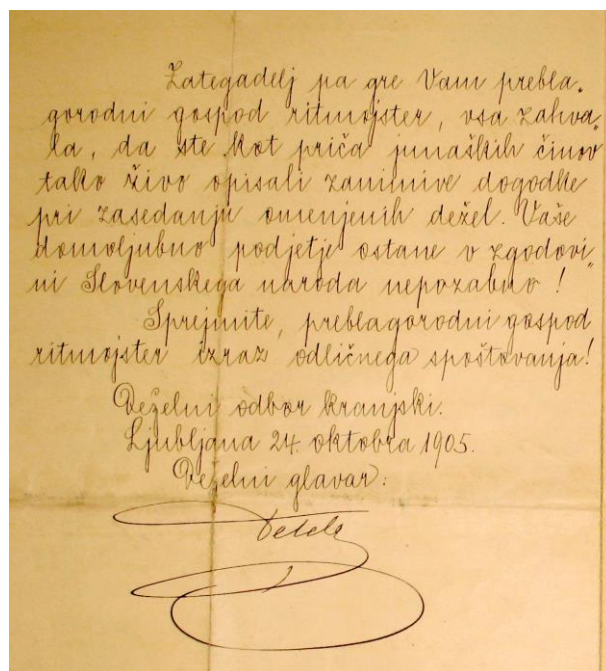 Zategadelj pa gre Vam prebla-
gorodni gospod ritmojster, vsa zahva-
la, da ste kot priča junaških činov
tako živo opisali zanimive dogodke
pri zasedanju omenjenih dežel. Vaše
domoljubno podjetje ostane v zgodovi-
ni Slovenskega naroda nepozabno!
Sprejmite, preblagorodni gospod
ritmojster izraz odličnega spoštovanja!
Deželni odbor kranjski.
Ljubljana 24. oktobra 1905.
Deželni glavar:
Detela